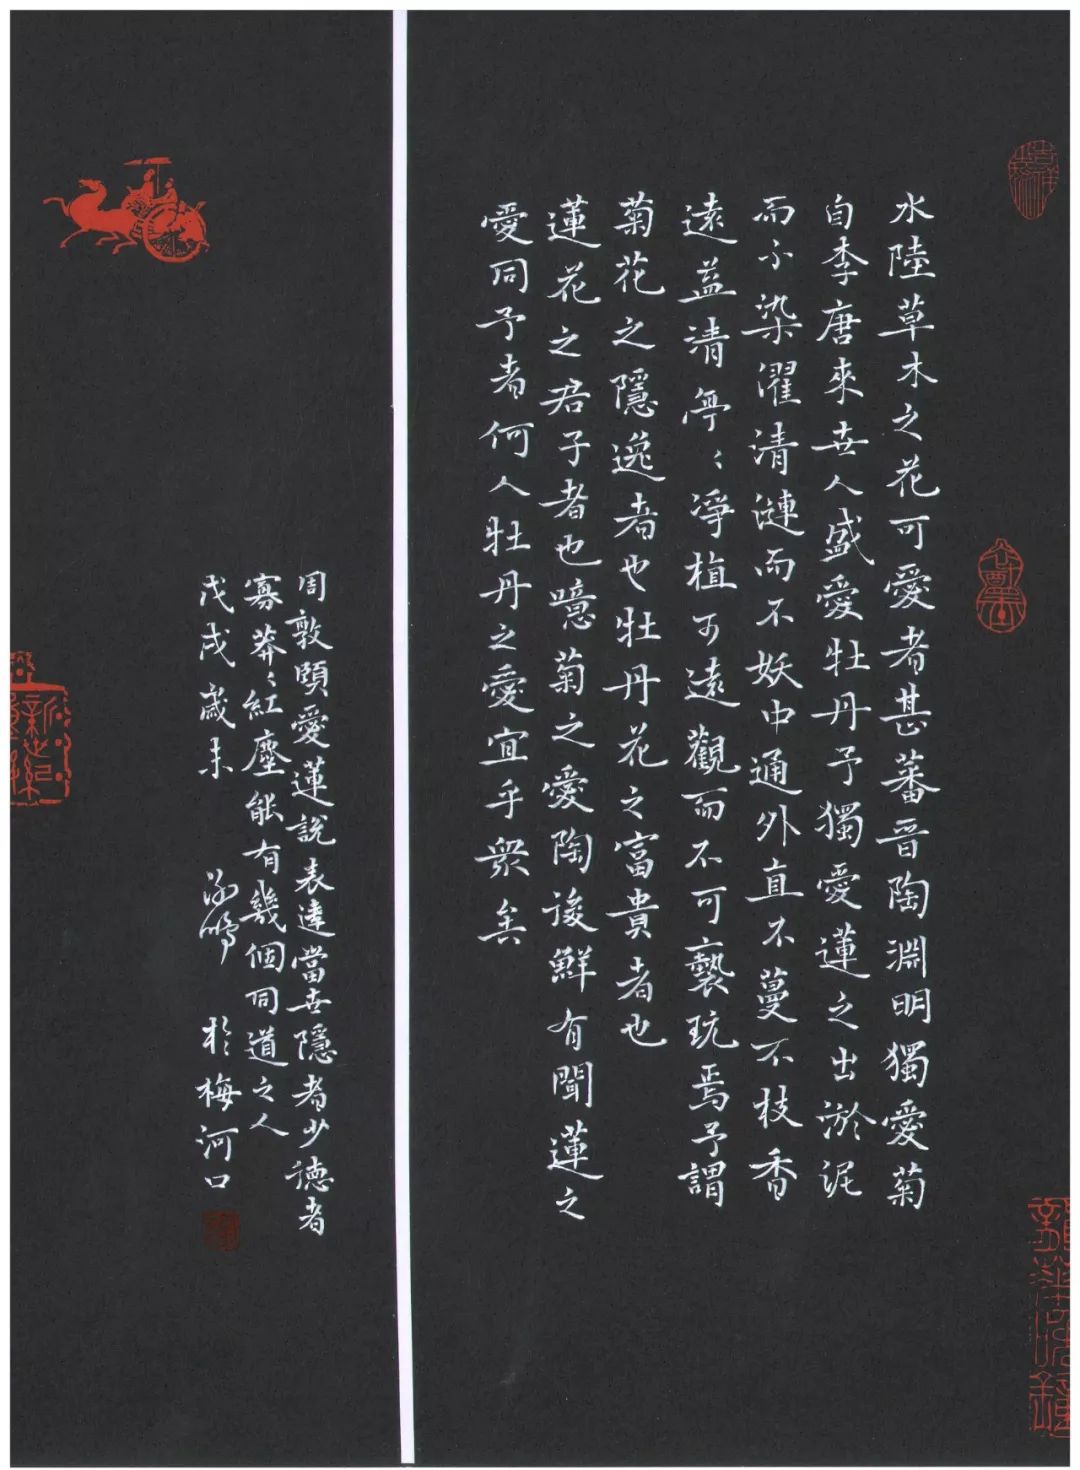 水陸草木之花可愛者甚蕃晉陶淵明獨愛菊
自李唐來世人盛愛牡丹予獨愛蓮之出淤泥
而不染濯清漣而不妖中通外直不蔓不枝香
遠益清亭〻淨植可遠觀而不可褻玩焉予謂
菊花之隱逸者也牡丹花之富貴者也
蓮花之君子者也噫菊之愛陶後鮮有聞蓮之
愛同予者何人牡丹之愛宜乎衆矣
周敦頤愛蓮說表達當世隱者少德者
寡莽〻紅塵能有幾個同道之人
戊戌歲末 於梅河口